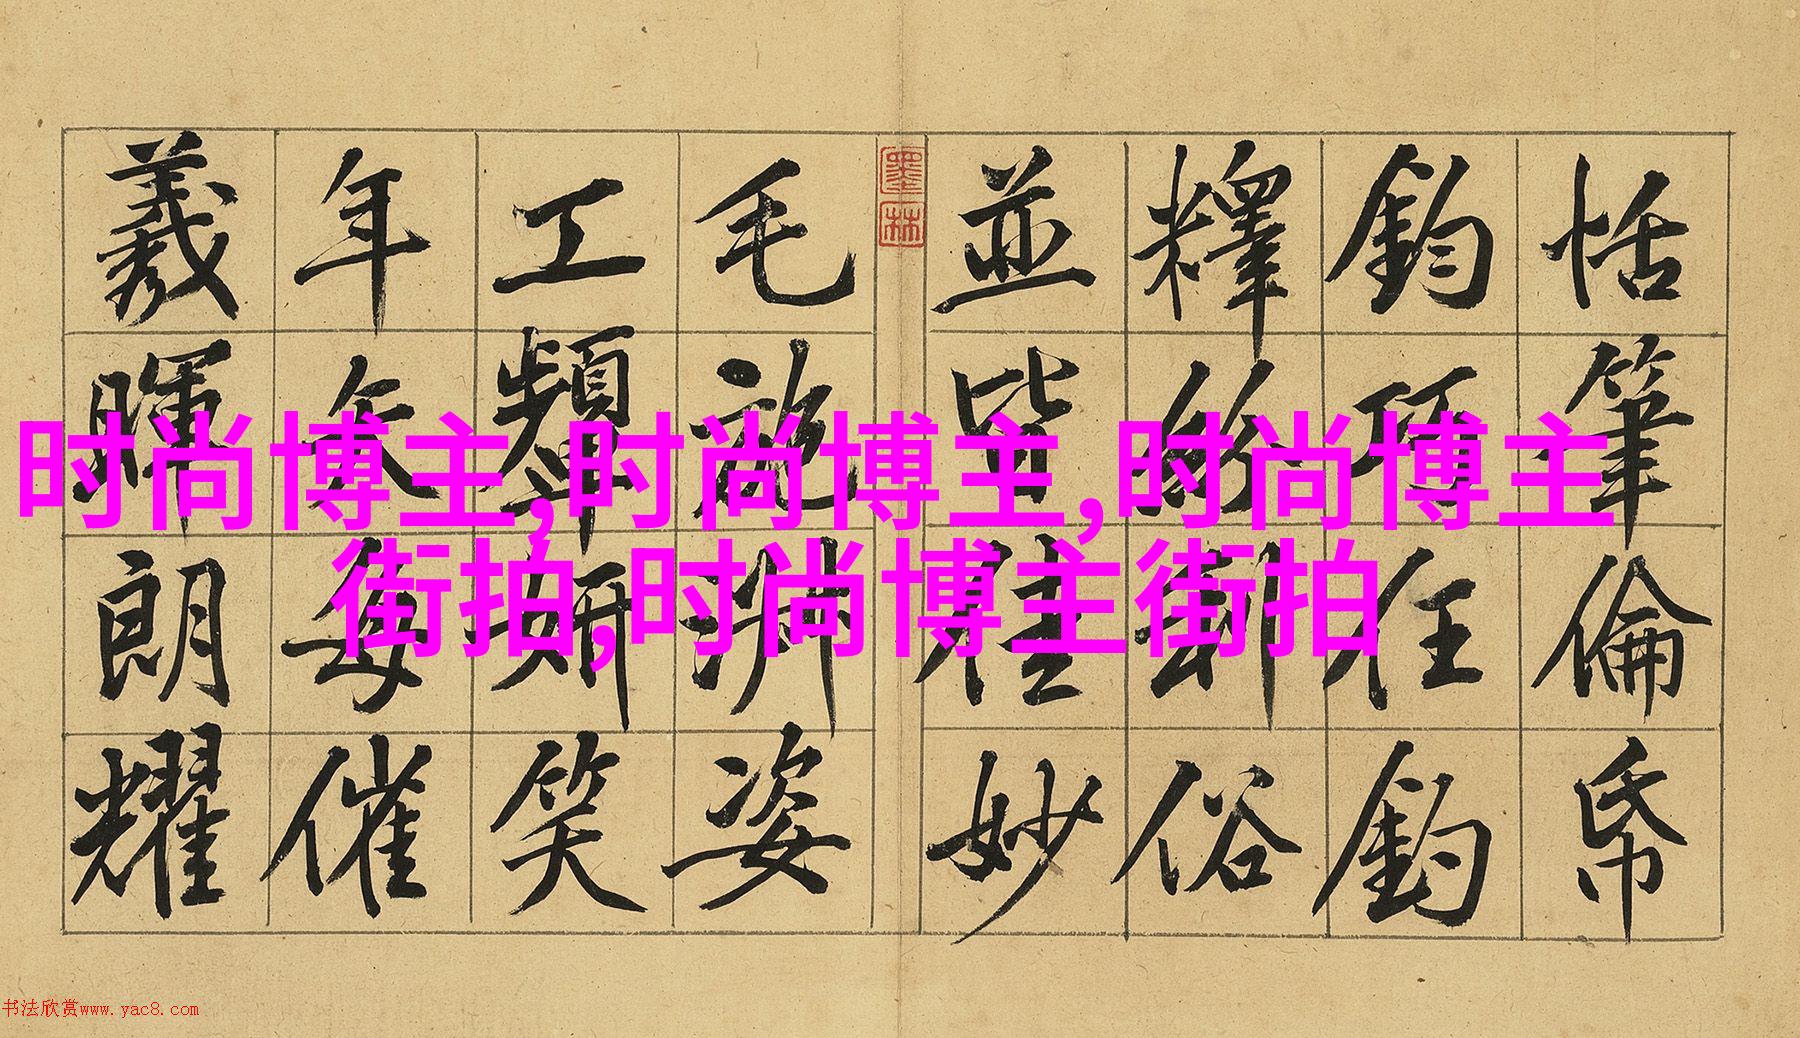 恬筆倫帋
鈞巧任釣
釋紛利俗
並皆佳妙
墨林
毛施淑姿
工顰妍笑
年矢每催
羲暉朗耀
时尚博主,时尚博主,时尚博主
街拍,时尚博主街拍
书法欣赏www.yac8.com